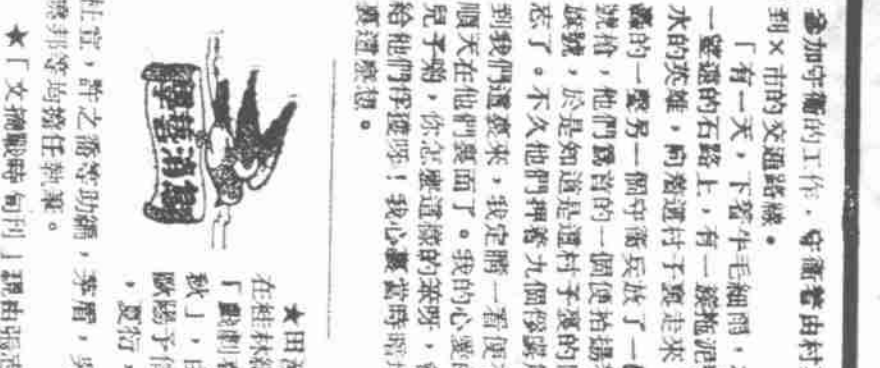 參加守衛的工作,守衛着由村
到×市的交通路線。
「有一天,下着牛毛細雨,
一望遠的石路上,有一簇拖泥
水的英雄,向着這村子裏走來
轟的一聲另一個守衛兵放了一
號槍,他們爲首的一個便拍揚
旗號,於是知道是這村子裏的
志了。不久他們押着九個俘虜
到我們這裏來,我定睛一看便
順天在他們裏面了。我的心愛的
兒子喲,你怎麼這樣的笨呀,
給他們俘獲呀!我心裏當時
裏這麼想。
學藝消息
★田
在桂林
「戲劇
秋」,由
歐陽予
,夏衍,
杜宣,許之喬等助編,茅盾,
等均擔任執筆。
★「文摘戰時旬刊」現由張志